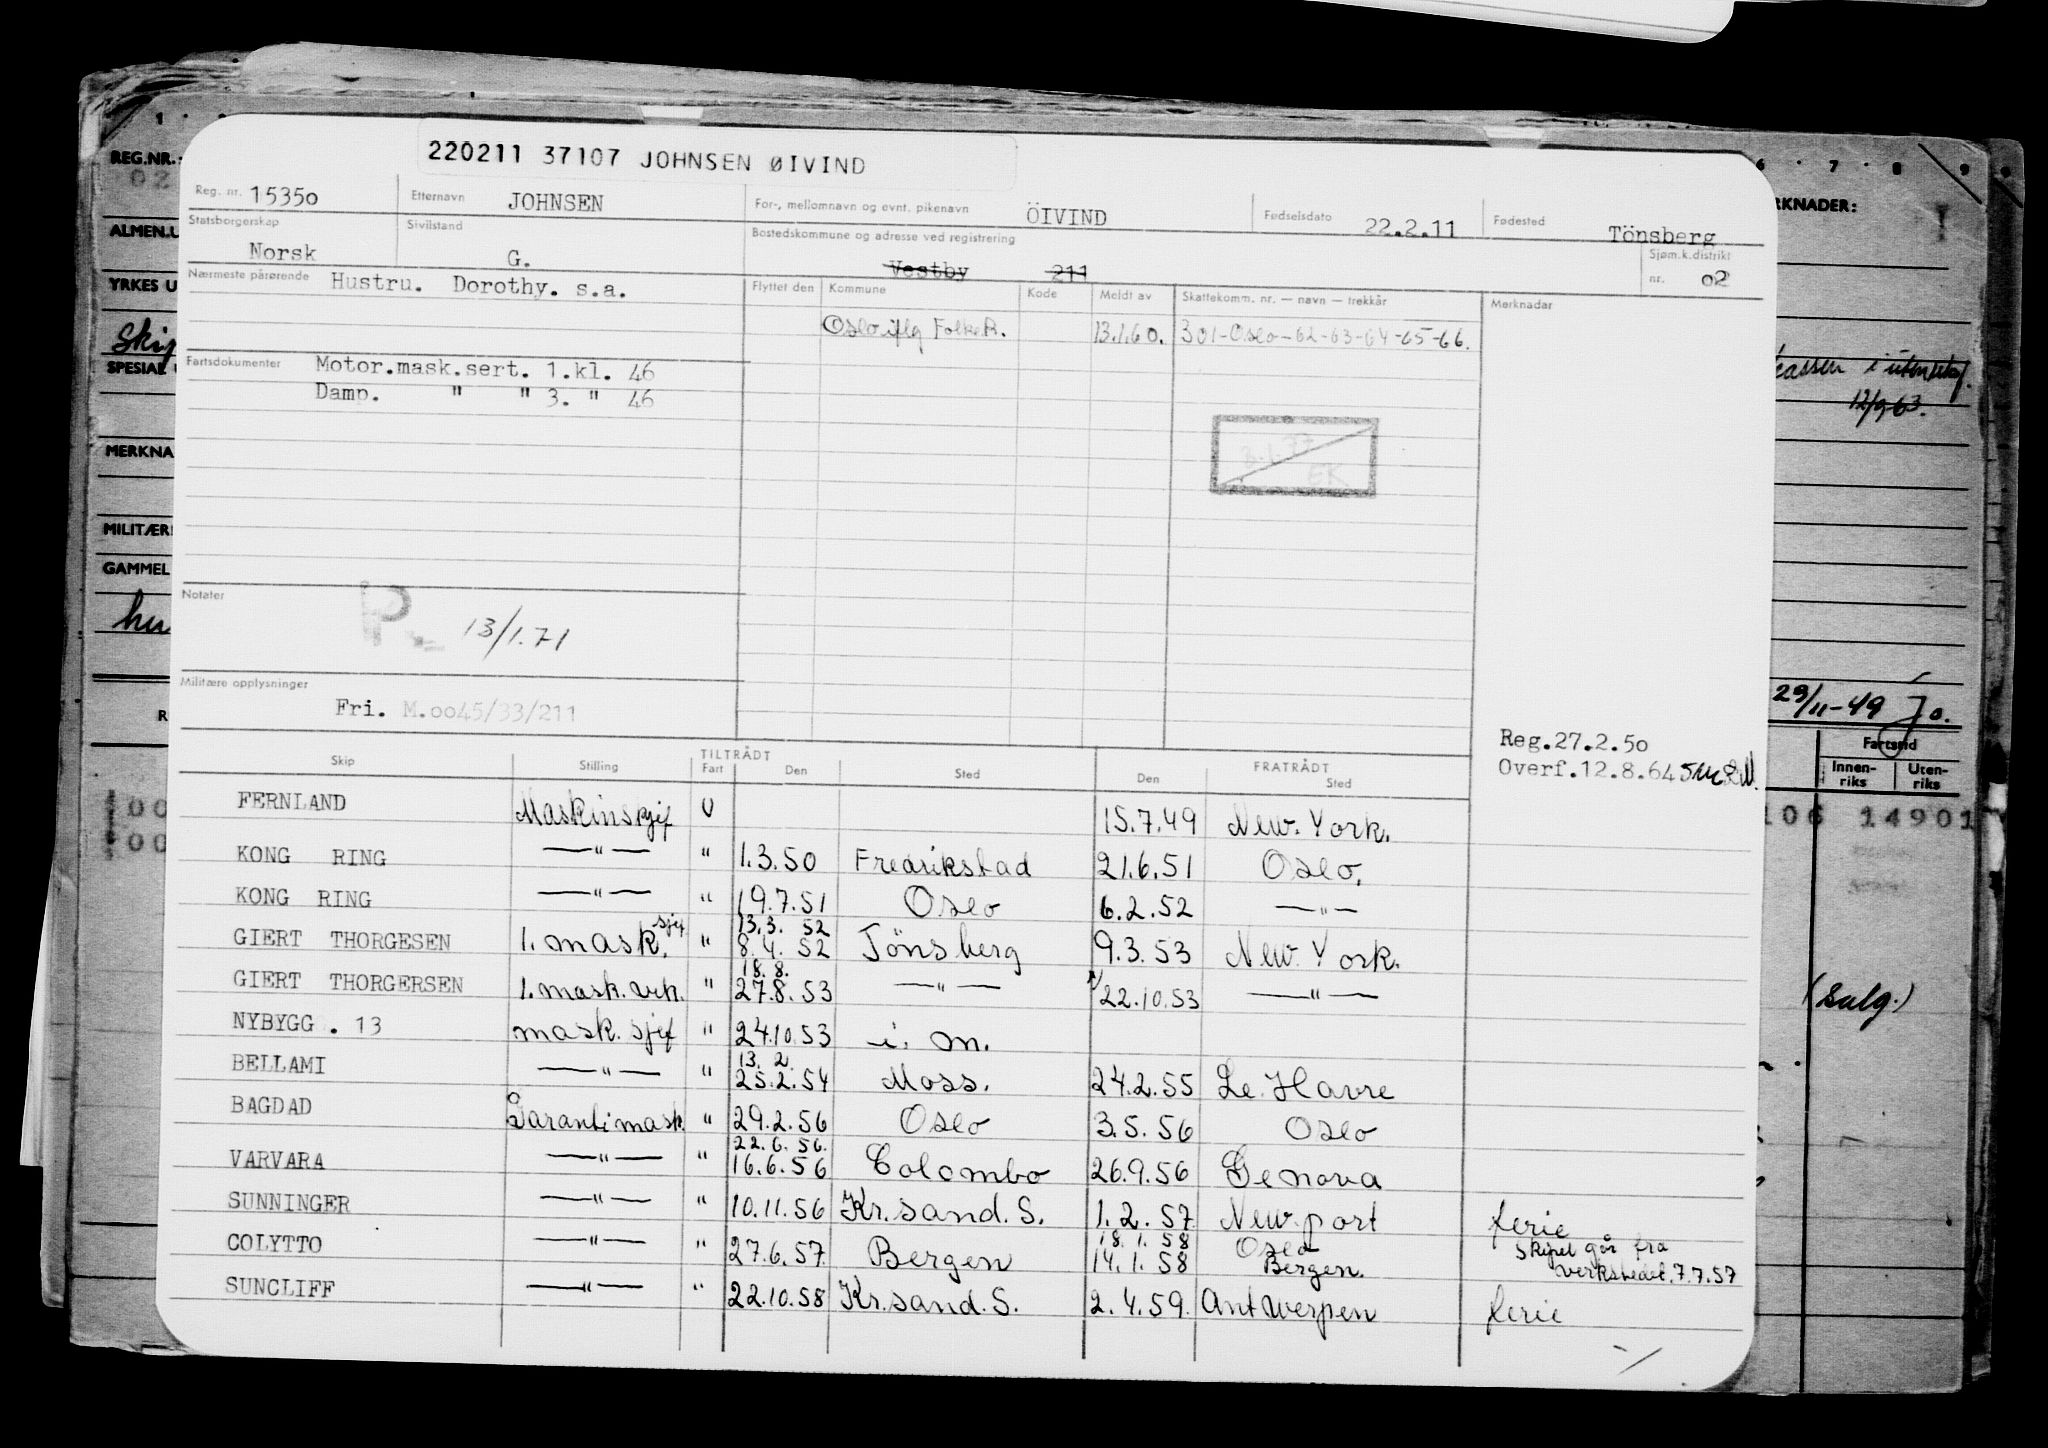 220211 37107 JOHNSEN ØIVIND
Reg. nr. 15350 Etternavn JOHNSEN For-, mellomnavn og evnt. pikenavn ÖIVIND Fødselsdato 22.2.11 Fødested Tönsberg
Statsborgerskap Norsk Sivilstand G. Bostedskommune og adresse ved registrering Vestby 211 Sjøm.k.distrikt nr. 02
Nærmeste pårørende Hustru. Dorothy. s.a. Flyttet den Kommune Kode Meldt av Skattekomm. nr. — navn — trekkår Merknader
Oslo iflg FolkeR. 13.1.60. 301-Oslo-62-63-64-65-66.
Fartsdokumenter Motor.mask.sert. 1.kl. 46
Damp. " " 3. " 46
3.1.77
EK
Notater P. 13/1.71
Militære opplysninger
Fri. M.0045/33/211
Reg.27.2.50
Overf.12.8.64
Skip Stilling TILTRÅDT Fart Den Sted FRATRÅDT Den Sted
FERNLAND Maskinskjef U 15.7.49 New. York.
KONG RING —"— " 1.3.50 Fredrikstad 21.6.51 Oslo.
KONG RING —"— " 19.7.51 Oslo 6.2.52 —"—
13.3. 52
GIERT THORGESEN 1. mask. sjef " 8.4. 52 Tönsberg 9.3.53 New. York.
18.8.
GIERT THORGERSEN 1. mask. vik. " 27.8.53 —"— 22.10.53 —"—
NYBYGG . 13 mask. sjef " 24.10.53 i. m.
13. 2.
BELLAMI —"— " 25.2.54 Moss. 24.2.55 Le. Havre
BAGDAD Garantimask. " 29.2.56 Oslo 3.5.56 Oslo
22.6. 56.
VARVARA —"— " 16.6.56 Colombo 26.9.56 Genova
SUNNINGER —"— " 10.11.56 Kr.sand. S. 1.2.57 New.port ferie
18.1.58 Oslo Skipet går fra
COLYTTO —"— " 27.6.57. Bergen 14.1.58 Bergen. verkstedet.7.7.57
SUNCLIFF —"— " 22.10.58 Kr.sand.S. 2.4.59. Antwerpen ferie
REG.NR.
02
ALMEN.U
YRKES U
Skip
SPESIAL
MERKNA
MILITÆR
GAMMEL
hu
RKNADER:
kassen i utenriksf.
12/9-63.
29/11-49 Jo.
Fartstid
Innen-riks Uten-riks
106 14901
(salg.)